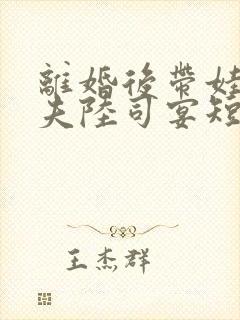 離婚後帶娃
夫陸司宴短
王杰群